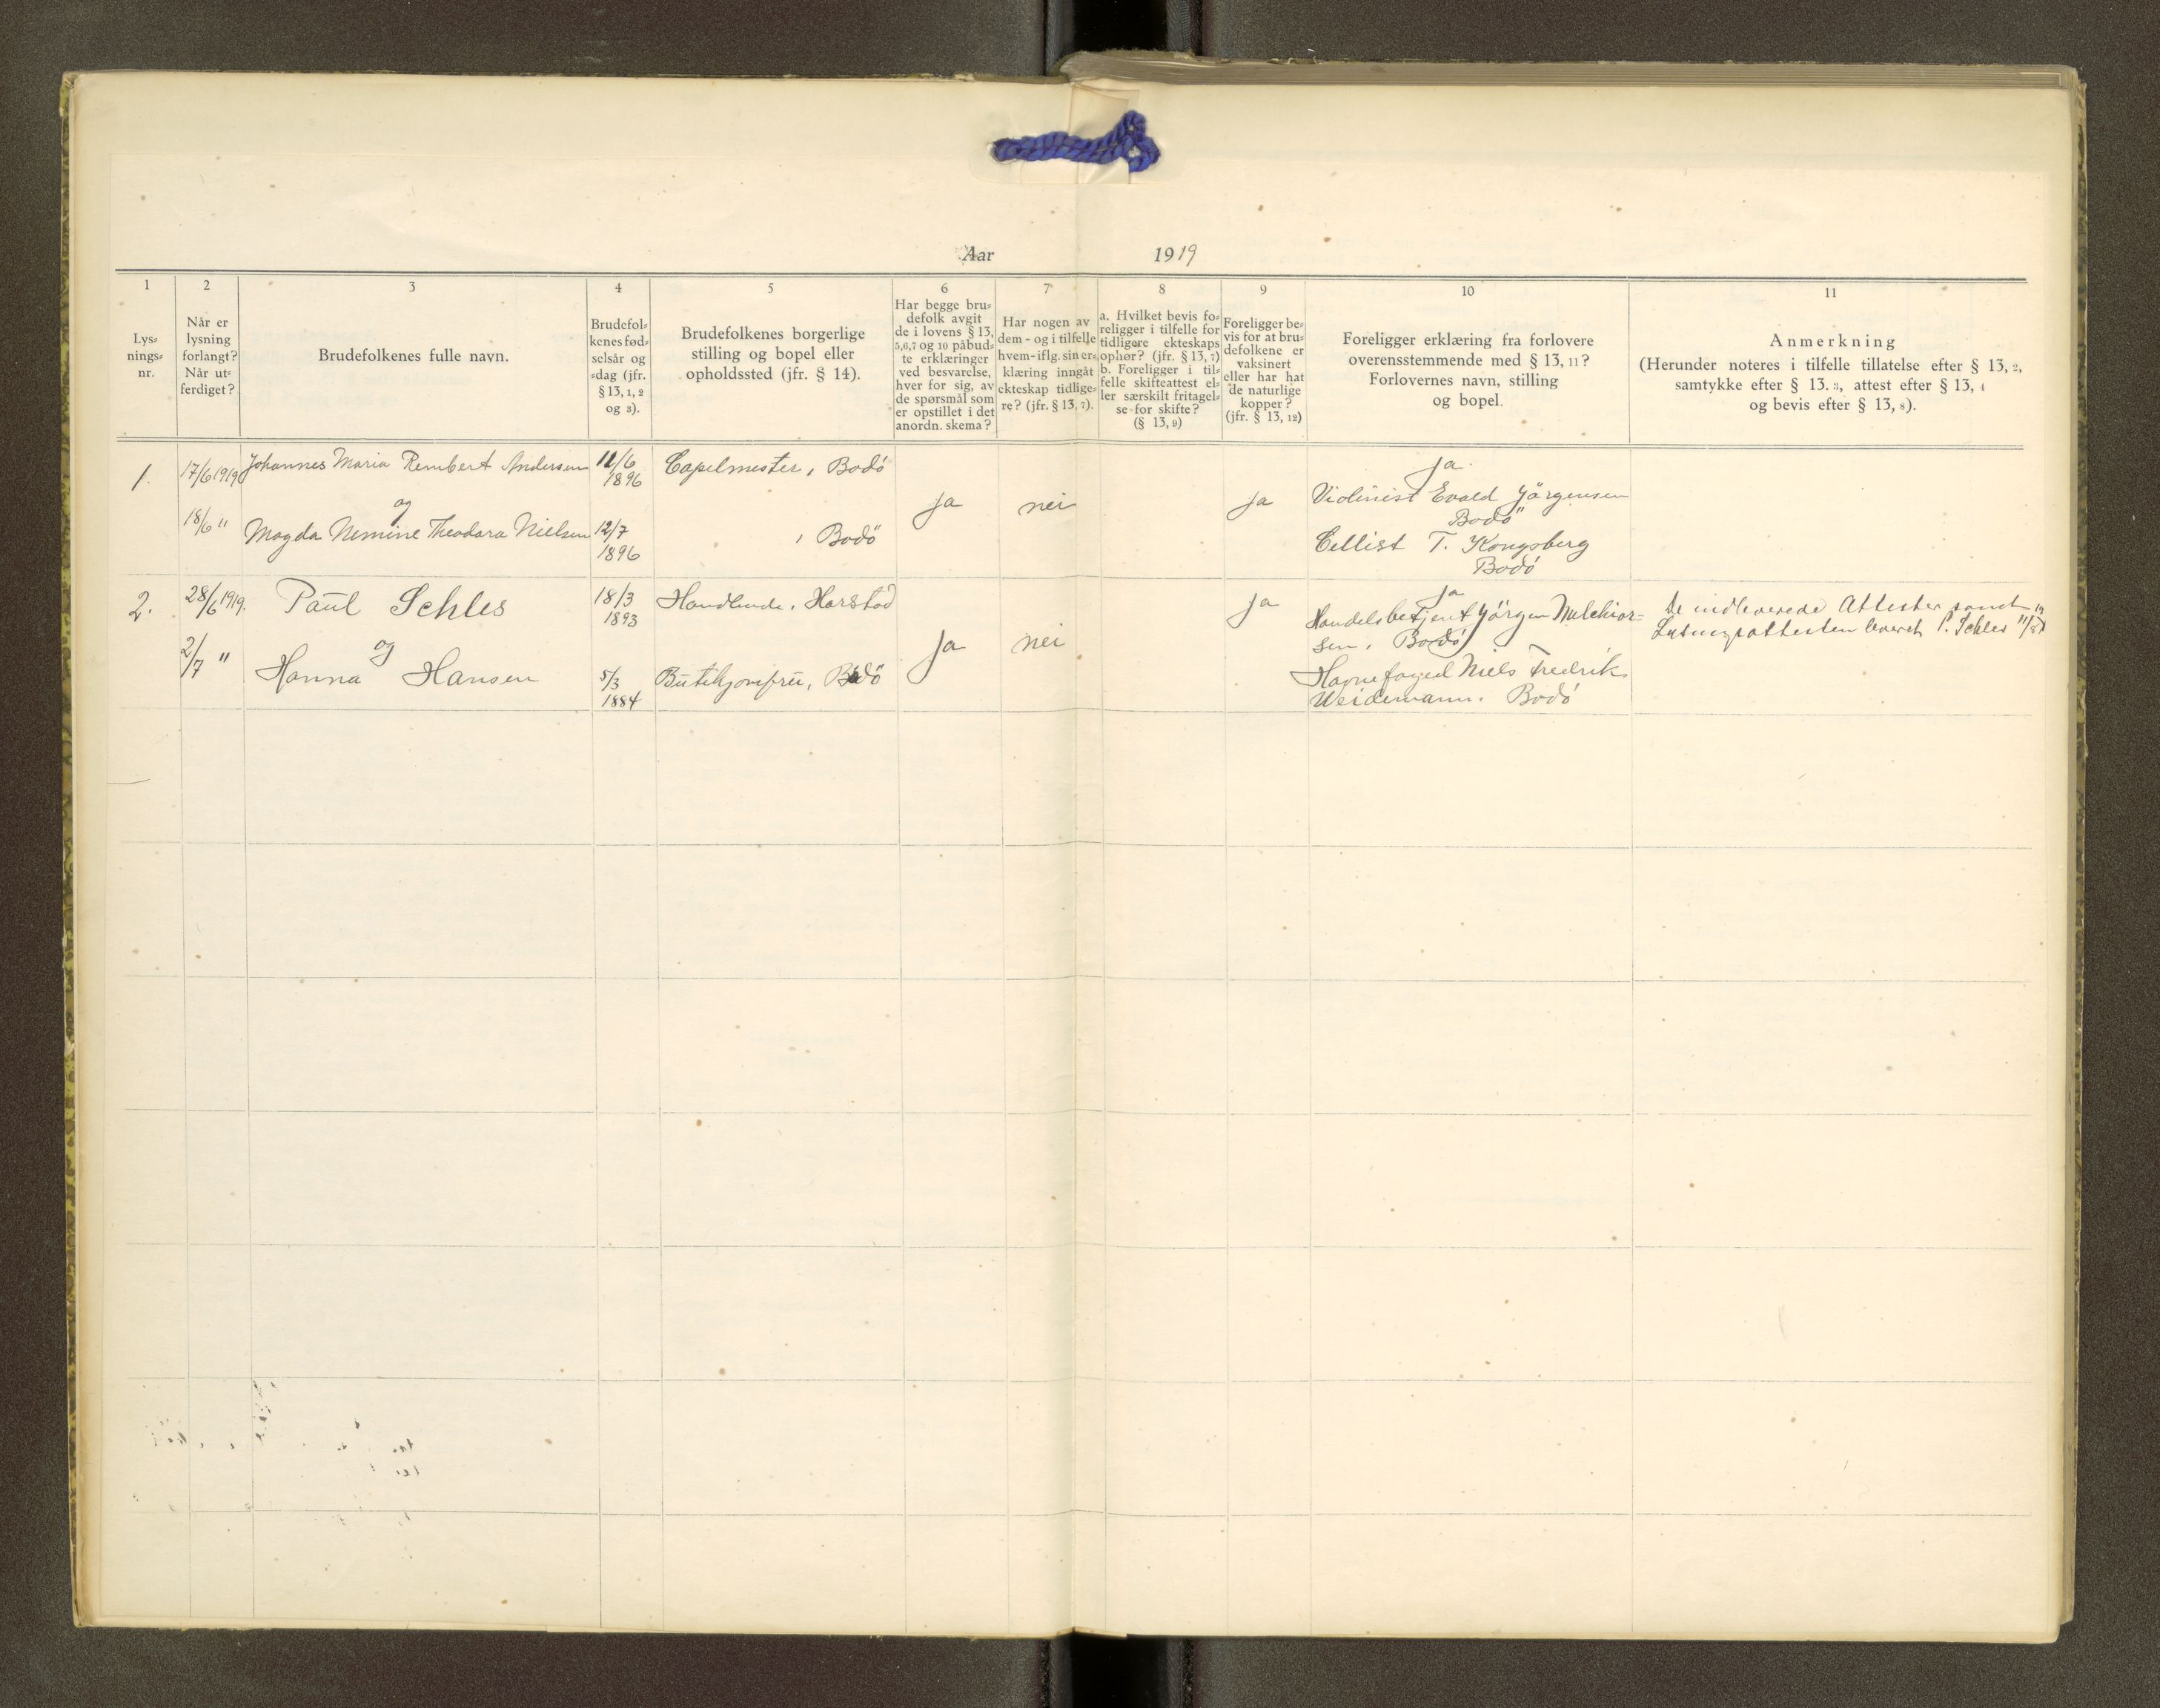 Aar 1919
1
Lys-
nings-
nr.
2
Når er
lysning
forlangt?
Når ut-
ferdiget?
3
Brudefolkenes fulle navn.
4
Brudefol-
kenes fød-
selsår og
-dag (jfr.
§ 13, 1, 2
og 3).
5
Brudefolkenes borgerlige
stilling og bopel eller
opholdssted (jfr. § 14).
6
Har begge bru-
defolk avgit
de i lovens § 13,
5,6,7 og 10 påbud-
te erklæringer
ved besvarelse,
hver for sig, av
de spørsmål som
er opstillet i det
anordn. skema?
7
Har nogen av
dem - og i tilfelle
hvem - iflg. sin er-
klæring inngåt
ekteskap tidlige-
re? (jfr. § 13, 7).
8
a. Hvilket bevis fo-
religger i tilfelle for
tidligere ekteskaps
ophør? (jfr. § 13, 7)
b. Foreligger i til-
felle skifteattest el-
ler særskilt fritagel-
se for skifte?
(§ 13, 9)
9
Foreligger be-
vis for at bru-
defolkene er
vaksinert
eller har hat
de naturlige
kopper?
(jfr. § 13, 12)
10
Foreligger erklæring fra forlovere
overensstemmende med § 13, 11?
Forlovernes navn, stilling
og bopel.
11
Anmerkning
(Herunder noteres i tilfelle tillatelse efter § 13, 2,
samtykke efter § 13. 3, attest efter § 13, 4
og bevis efter § 13, 8).
1.
17/6 1919
18/6 "
Johannes Maria Rembert Andersen
og
Magda Nemine Theodora Nielsen
/6
1896
12/7
1896
Capelmester, Bodö
, Bodö
ja
nei
ja
ja
Violinist Evald Jörgensen
Bodö
Cellist T. Kongsberg
Bodö
2.
28/6 1919.
2/7 "
Paul Schles
og
Hanna Hansen
18/3
1893
5/3
1884
Handlende, Harstad
Butikjomfru, Bodö
ja
nei
ja
ja
Handelsbetjent Jörgen Melchior-
sen, Bodö
Havnefoged Niels Fredrik
Weidemann. Bodö
De indleverede Attester samt
Lysningsattesten leveret P. Schles